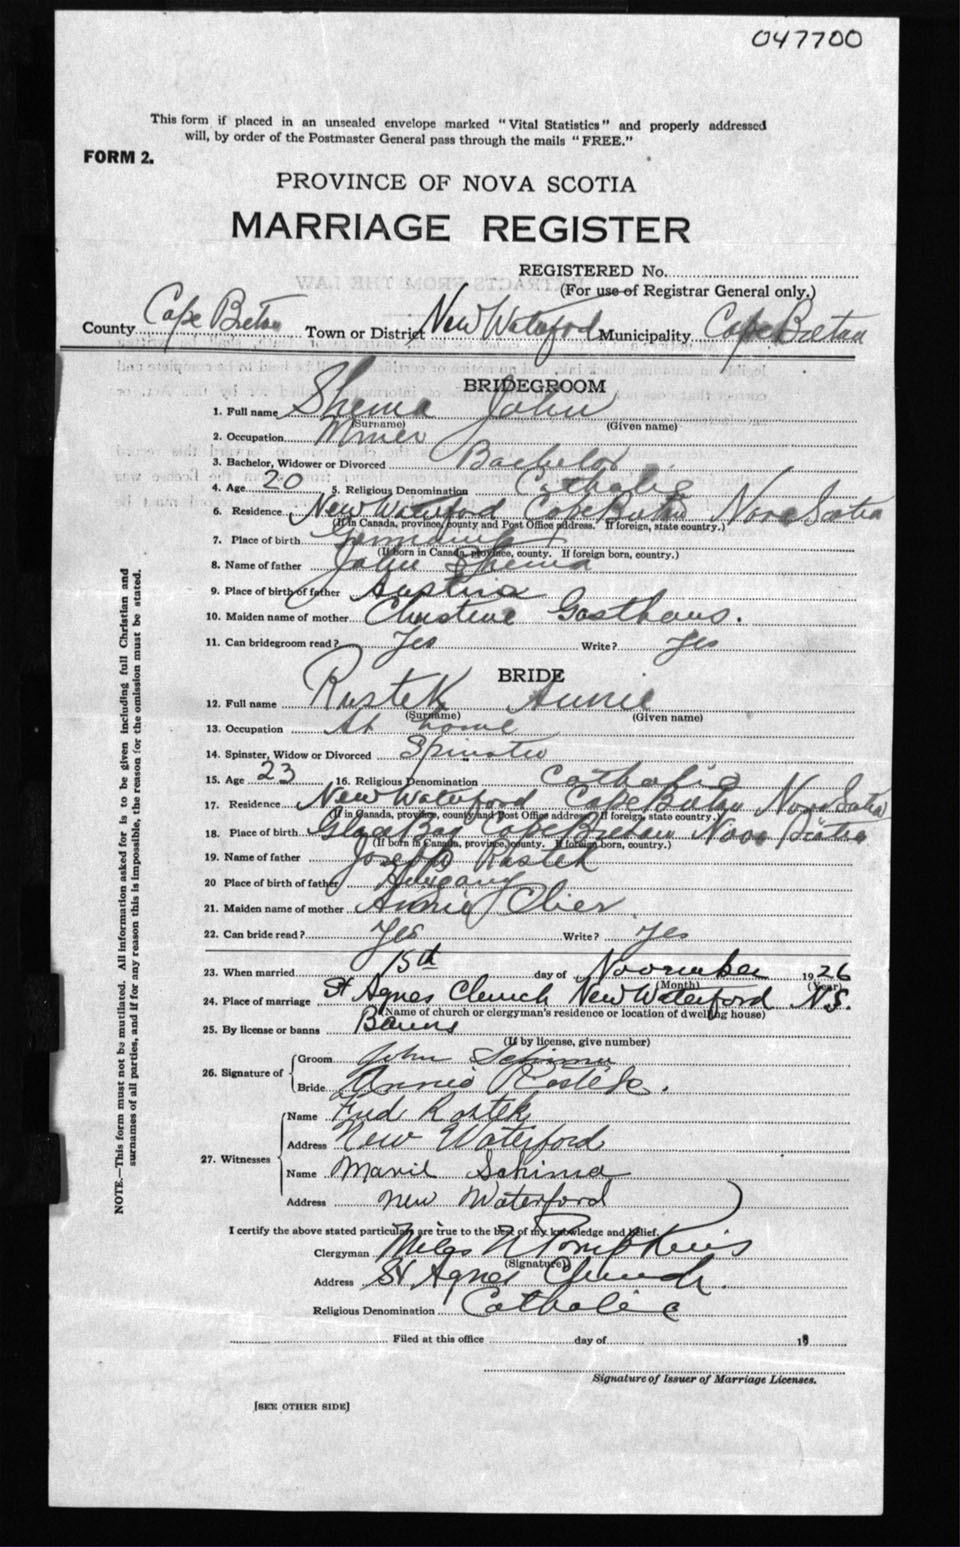 047700
This form if placed in an unsealed envelope marked "Vital Statistics" and properly addressed
will, by order of the Postmaster General pass through the mails "FREE."
FORM 2.
PROVINCE OF NOVA SCOTIA
MARRIAGE REGISTER
REGISTERED No.
(For use of Registrar General only.)
County Cape Breton Town or District New Waterford Municipality Cape Breton
BRIDEGROOM
1. Full name Shema John
(Surname) (Given name)
2. Occupation Miner
3. Bachelor, Widower or Divorced Bachelor
4. Age 20 5. Religious Denomination Catholic
6. Residence New Waterford Cape Breton Nova Scotia
(If in Canada, province, county and Post Office address. If foreign, state country.)
7. Place of birth Germany
(If born in Canada, province, county. If foreign born, country.)
8. Name of father John Shema
9. Place of birth of father Austria
10. Maiden name of mother Christine Gasthaus.
11. Can bridegroom read? Yes Write? Yes
BRIDE
12. Full name Rostek Annie
(Surname) (Given name)
13. Occupation At home
14. Spinster, Widow or Divorced Spinster
15. Age 23 16. Religious Denomination Catholic
17. Residence New Waterford Cape Breton Nova Scotia
(If in Canada, province, county and Post Office address. If foreign, state country.)
18. Place of birth Glace Bay Cape Breton Nova Scotia
(If born in Canada, province, county. If foreign born, country.)
19. Name of father Joseph Rostek
20 Place of birth of father
21. Maiden name of mother Annie Clier
22. Can bride read? Yes Write? Yes
23. When married 15th day of November 1926
(Month) (Year)
24. Place of marriage St Agnes Church New Waterford N.S.
(Name of church or clergyman's residence or location of dwelling house)
25. By license or banns Banns
(If by license, give number)
26. Signature of Groom John Schima
Bride Annie Rostek.
27. Witnesses
Name Fred Rostek
Address New Waterford
Name Schima
Address New Waterford
I certify the above stated particulars are true to the best of my knowledge and belief.
Clergyman Miles N Tompkins
(Signature)
Address St Agnes Church.
Religious Denomination Catholic
Filed at this office day of 19
Signature of Issuer of Marriage Licenses.
[SEE OTHER SIDE]
NOTE.—This form must not be mutilated. All information asked for is to be given including full Christian and
surnames of all parties, and if for any reason this is impossible, the reason for the omission must be stated.